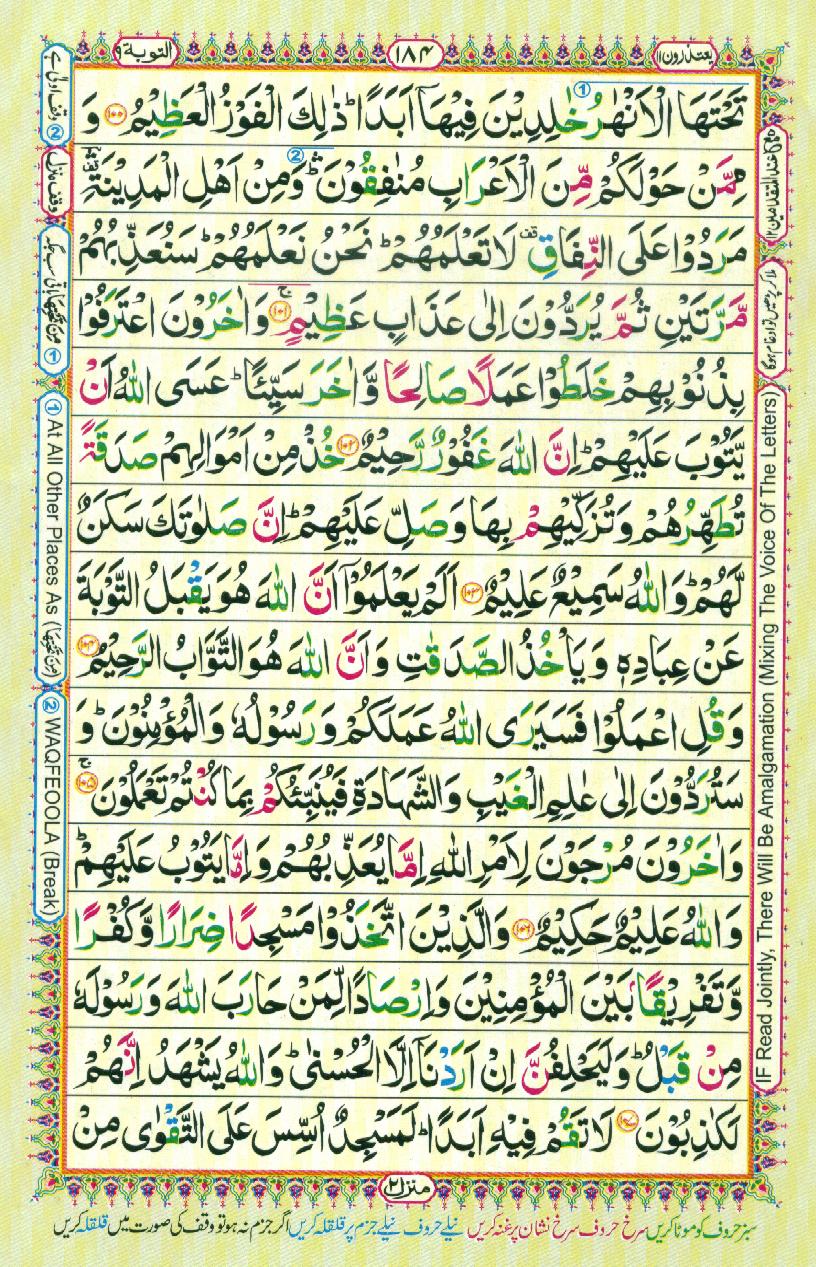 يعتذرون ١١
١٨٤
التوبة ٩
تَحْتَهَا الْاَنْهٰرُ خٰلِدِيْنَ فِيْهَاۤ اَبَدًا ؕ ذٰلِكَ الْفَوْزُ الْعَظِيْمُ ۝۱۰۰ وَ
مِمَّنْ حَوْلَكُمْ مِّنَ الْاَعْرَابِ مُنٰفِقُوْنَ ۛؕ وَمِنْ اَهْلِ الْمَدِيْنَةِ ۛ
مَرَدُوْا عَلَى النِّفَاقِ ۫ لَا تَعْلَمُهُمْ ؕ نَحْنُ نَعْلَمُهُمْ ؕ سَنُعَذِّبُهُمْ
مَّرَّتَيْنِ ثُمَّ يُرَدُّوْنَ اِلٰى عَذَابٍ عَظِيْمٍ ۝۱۰۱ۚ وَ اٰخَرُوْنَ اعْتَرَفُوْا
بِذُنُوْبِهِمْ خَلَطُوْا عَمَلًا صَالِحًا وَّ اٰخَرَ سَيِّئًا ؕ عَسَى اللّٰهُ اَنْ
يَّتُوْبَ عَلَيْهِمْ ؕ اِنَّ اللّٰهَ غَفُوْرٌ رَّحِيْمٌ ۝۱۰۲ خُذْ مِنْ اَمْوَالِهِمْ صَدَقَةً
تُطَهِّرُهُمْ وَتُزَكِّيْهِمْ بِهَا وَصَلِّ عَلَيْهِمْ ؕ اِنَّ صَلٰوتَكَ سَكَنٌ
لَّهُمْ ؕ وَاللّٰهُ سَمِيْعٌ عَلِيْمٌ ۝۱۰۳ اَلَمْ يَعْلَمُوْۤا اَنَّ اللّٰهَ هُوَ يَقْبَلُ التَّوْبَةَ
عَنْ عِبَادِهٖ وَيَاْخُذُ الصَّدَقٰتِ وَاَنَّ اللّٰهَ هُوَ التَّوَّابُ الرَّحِيْمُ ۝۱۰۴
وَقُلِ اعْمَلُوْا فَسَيَرَى اللّٰهُ عَمَلَكُمْ وَرَسُوْلُهٗ وَالْمُؤْمِنُوْنَ ؕ وَ
سَتُرَدُّوْنَ اِلٰى عٰلِمِ الْغَيْبِ وَالشَّهَادَةِ فَيُنَبِّئُكُمْ بِمَا كُنْتُمْ تَعْمَلُوْنَ ۝۱۰۵ۚ
وَاٰخَرُوْنَ مُرْجَوْنَ لِاَمْرِ اللّٰهِ اِمَّا يُعَذِّبُهُمْ وَاِمَّا يَتُوْبُ عَلَيْهِمْ ؕ
وَاللّٰهُ عَلِيْمٌ حَكِيْمٌ ۝۱۰۶ وَالَّذِيْنَ اتَّخَذُوْا مَسْجِدًا ضِرَارًا وَّكُفْرًا
وَّتَفْرِيْقًۢا بَيْنَ الْمُؤْمِنِيْنَ وَاِرْصَادًا لِّمَنْ حَارَبَ اللّٰهَ وَرَسُوْلَهٗ
مِنْ قَبْلُ ؕ وَلَيَحْلِفُنَّ اِنْ اَرَدْنَاۤ اِلَّا الْحُسْنٰى ؕ وَاللّٰهُ يَشْهَدُ اِنَّهُمْ
لَكٰذِبُوْنَ ۝۱۰۷ لَا تَقُمْ فِيْهِ اَبَدًا ؕ لَمَسْجِدٌ اُسِّسَ عَلَى التَّقْوٰى مِنْ
منزل ٢
سبز حروف کو موٹا کریں سرخ حروف سرخ نشان پر غنہ کریں نیلے حروف نیلے جزم پر قلقلہ کریں اگر جزم نہ ہو تو وقف کی صورت میں قلقلہ کریں
وقف اولٰی ہے ②
وقف منزل
مِنْ تَحْتِهَا باقی سب جگہ ①
① At All Other Places As (مِنْ تَحْتِهَا)
② WAQFEOOLA (Break)
IF Read Jointly, There Will Be Amalgamation (Mixing The Voice Of The Letters)
ملا کر پڑھیں تو ادغام ہو گا